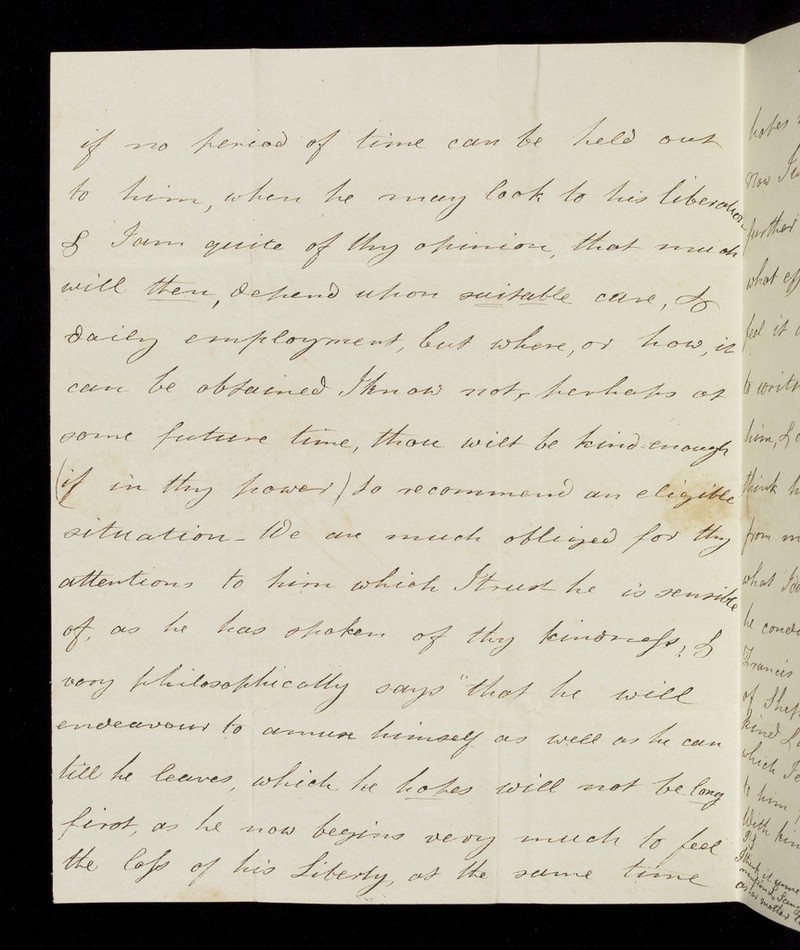 if no period of time can be held out
to him, when he may look to his liberation
& I am quite of thy opinion, that much
will then, depend upon suitable care, &
daily employment, but where, or how, it
can be obtained I know not, perhaps at
some future time, thou wilt be kind enough
(if in thy power) to recommend an eligible
situation - We are much obliged for thy
attentions to him which I trust he is sensible
of, as he has spoken of thy kindness, &
very philosophically says "that he will
endeavour to amuse himself as well as he can
till he leaves, which he hopes will not be long
first, as he now begins very much to feel
the loss of his Liberty, at the same time
hopes
now
further
what
feel it
to write
him, &
think
from
what I
he
Francis
of
kind
which
to him
With